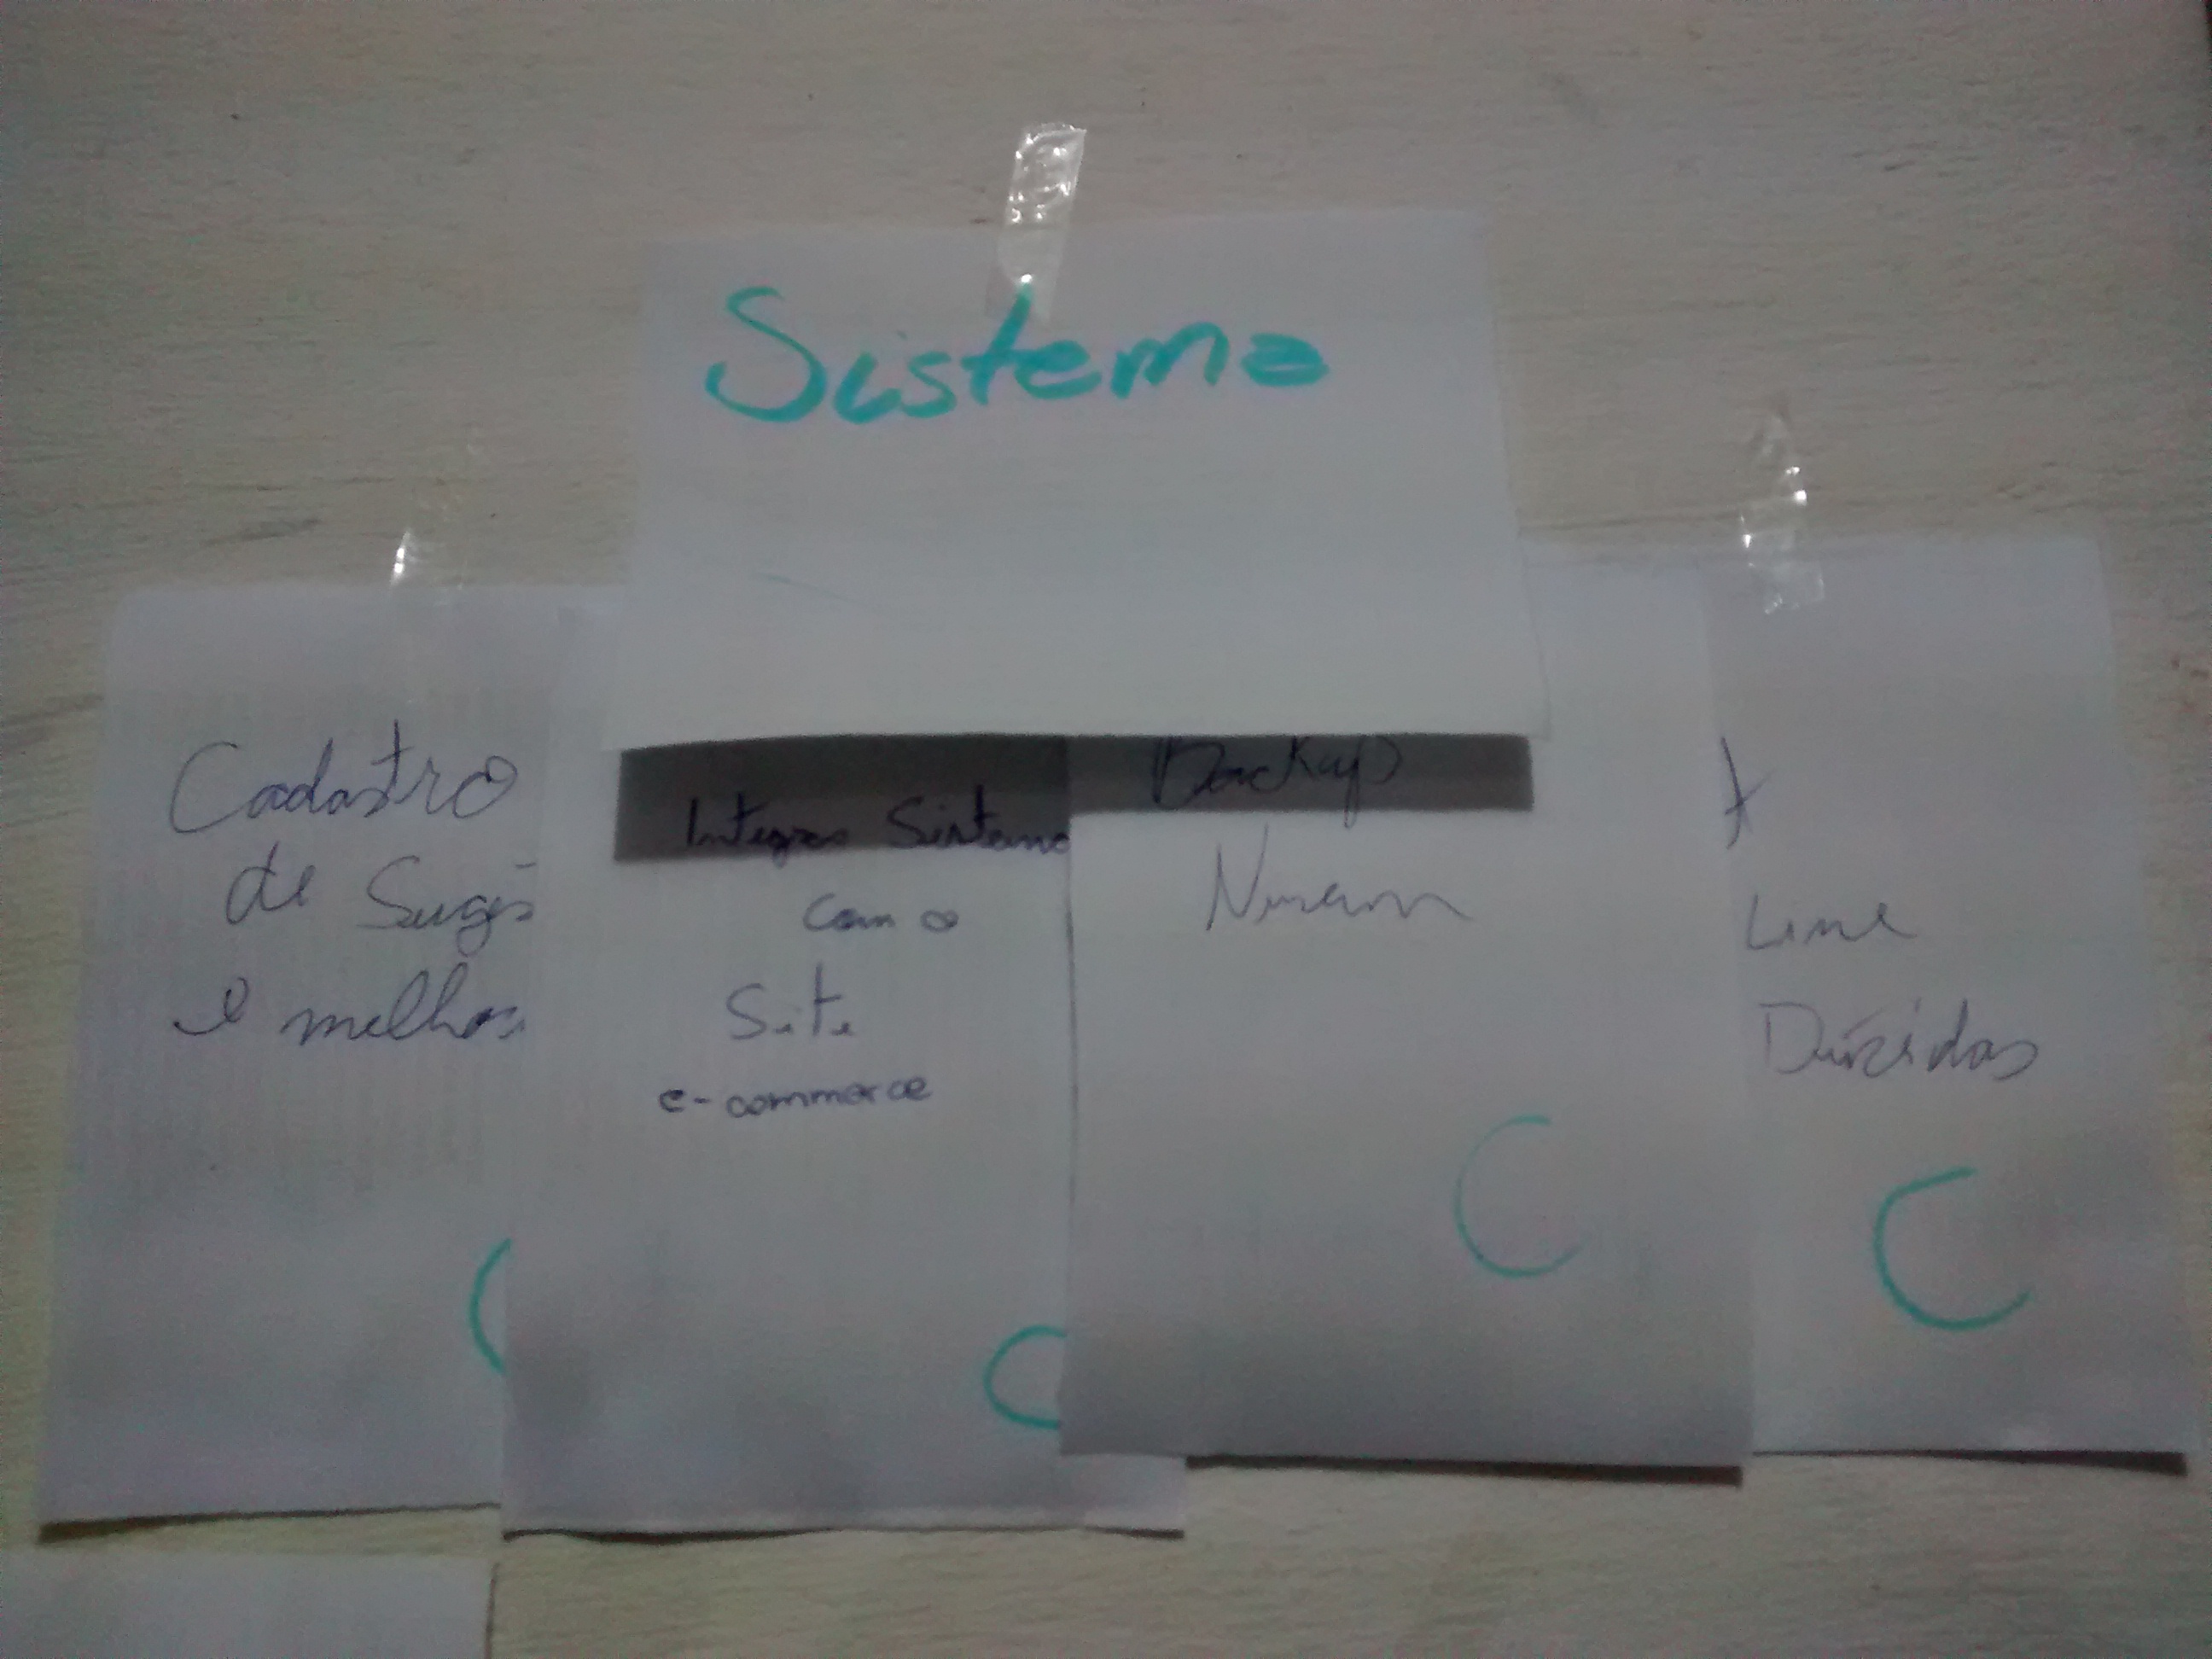 Sistema
Cadastro
de Suges
e melhor
Integrar Sistema
com o
Site
e-commerce
Backup
Nuvem
t
Line
Dúvidas
C
C
C